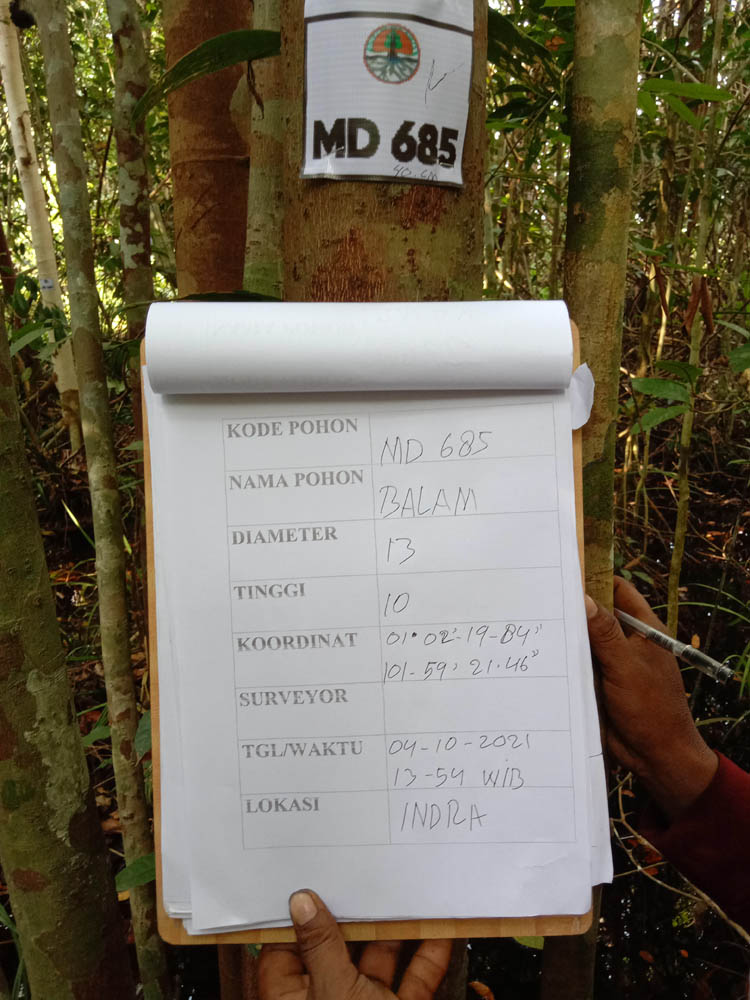 MD 685
40. cm
KODE POHON MD 685
NAMA POHON BALAM
DIAMETER 13
TINGGI 10
KOORDINAT 01° 02'-19-84"
101-59' 21.46"
SURVEYOR
TGL/WAKTU 04-10-2021
13-54 WIB
LOKASI INDRA